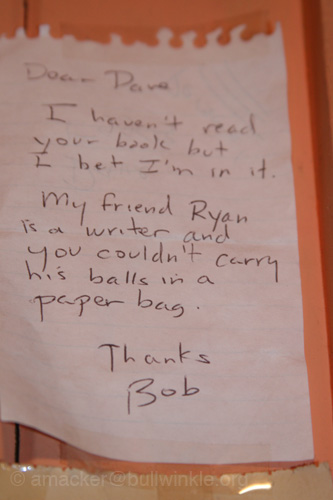 Dear Dave
I haven't read
your book but
I bet I'm in it.
My friend Ryan
is a writer and
you couldn't carry
his balls in a
paper bag.
Thanks
Bob
© amacker@bullwinkle.org